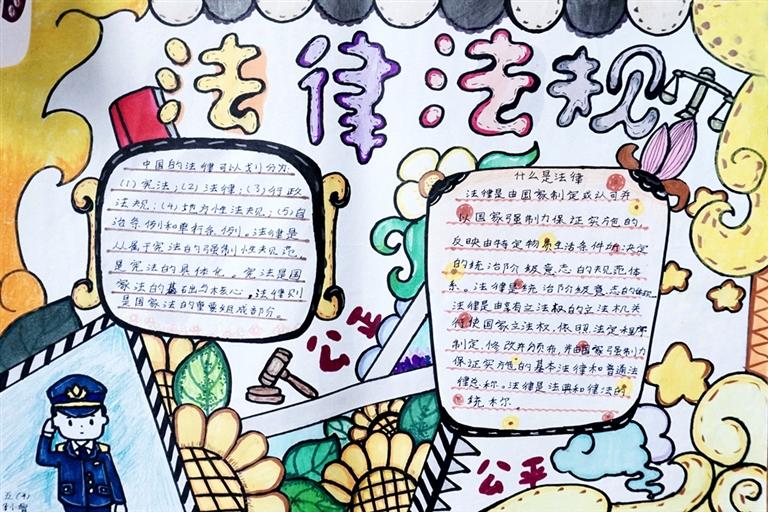 法律法规
中国的法律可以划分为:
(1)宪法;(2)法律;(3)行政
法规;(4)地方性法规;(5)自
治条例和单行条例。法律是
从属于宪法的强制性规范,
是宪法的具体化。宪法是国
家法的基础与核心,法律则
是国家法的重要组成部分。
什么是法律
法律是由国家制定或认可并
以国家强制力保证实施的,
反映由特定物质生活条件所决定
的统治阶级意志的规范体
系。法律是统治阶级意志的体现
法律是由享有立法权的立法机关
行使国家立法权,依照法定程序
制定、修改并颁布,并由国家强制力
保证实施的基本法律和普通法
律总称。法律是法典和律法的
统称
公正
公平
五(4)